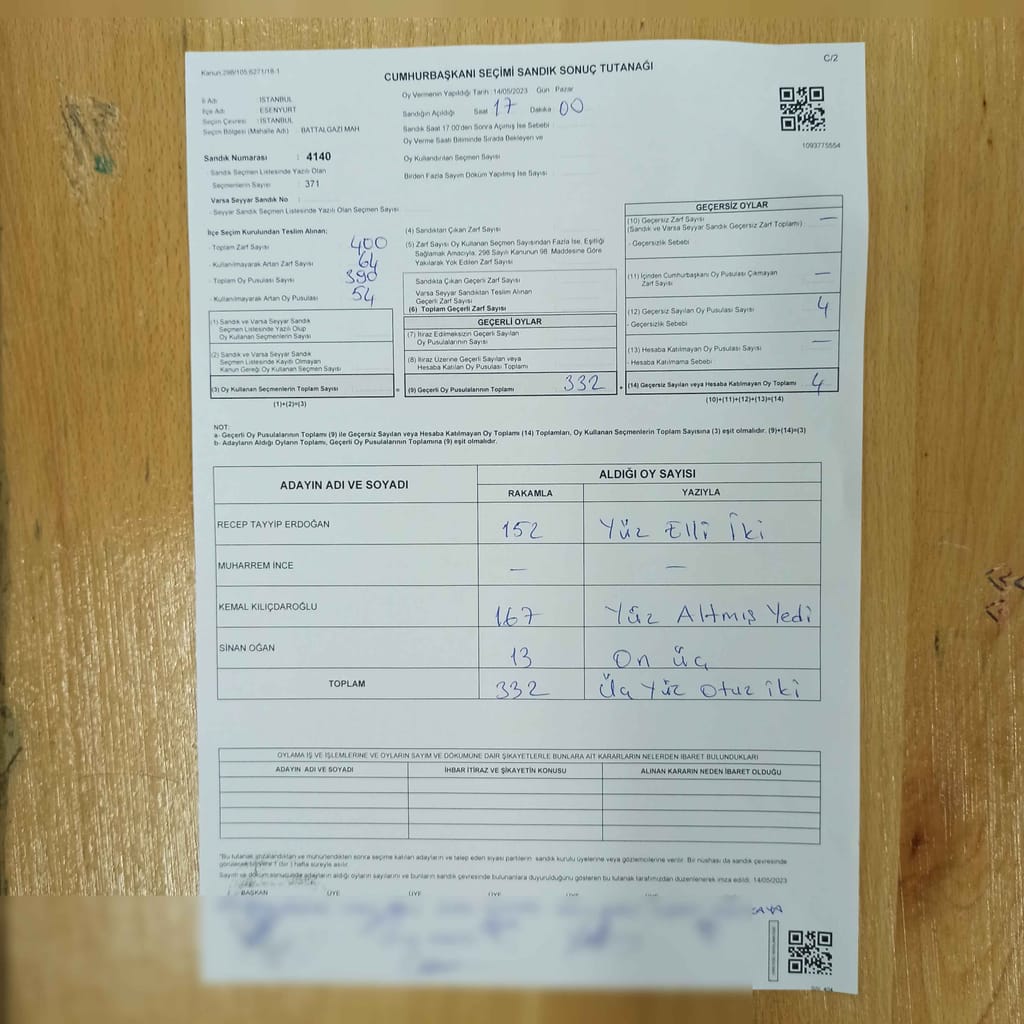 Kanun:298/105;6271/18-1
C/2
CUMHURBAŞKANI SEÇİMİ SANDIK SONUÇ TUTANAĞI
İl Adı : İSTANBUL
İlçe Adı : ESENYURT
Seçim Çevresi : İSTANBUL
Seçim Bölgesi (Mahalle Adı) : BATTALGAZİ MAH
Sandık Numarası : 4140
Sandık Seçmen Listesinde Yazılı Olan
Seçmenlerin Sayısı : 371
Varsa Seyyar Sandık No :
Seyyar Sandık Seçmen Listesinde Yazılı Olan Seçmen Sayısı
Oy Vermenin Yapıldığı Tarih : 14/05/2023 Gün Pazar
Sandığın Açıldığı Saat 17 Dakika 00
Sandık Saat 17.00'den Sonra Açımış İse Sebebi
Oy Verme Saati Bitiminde Sırada Bekleyen ve
Oy Kullandırılan Seçmen Sayısı
Birden Fazla Sayım Döküm Yapılmış İse Sayısı
1093775554
İlçe Seçim Kurulundan Teslim Alınan;
- Toplam Zarf Sayısı 400
- Kullanılmayarak Artan Zarf Sayısı 64
- Toplam Oy Pusulası Sayısı 390
- Kullanılmayarak Artan Oy Pusulası 54
(1) Sandık ve Varsa Seyyar Sandık
Seçmen Listesinde Yazılı Olup
Oy Kullanan Seçmenlerin Sayısı
(2) Sandık ve Varsa Seyyar Sandık
Seçmen Listesinde Kayıtlı Olmayan
Kanun Gereği Oy Kullanan Seçmen Sayısı
(3) Oy Kullanan Seçmenlerin Toplam Sayısı =
(1)+(2)=(3)
(4) Sandıktan Çıkan Zarf Sayısı
(5) Zarf Sayısı Oy Kullanan Seçmen Sayısından Fazla İse, Eşitliği
Sağlamak Amacıyla, 298 Sayılı Kanunun 98. Maddesine Göre
Yakılarak Yok Edilen Zarf Sayısı
Sandıkta Çıkan Geçerli Zarf Sayısı
Varsa Seyyar Sandıktan Teslim Alınan
Geçerli Zarf Sayısı
(6) Toplam Geçerli Zarf Sayısı
GEÇERLİ OYLAR
(7) İtiraz Edilmeksizin Geçerli Sayılan
Oy Pusulalarının Sayısı
(8) İtiraz Üzerine Geçerli Sayılan veya
Hesaba Katılan Oy Pusulası Toplamı
(9) Geçerli Oy Pusulalarının Toplamı 332
GEÇERSİZ OYLAR
(10) Geçersiz Zarf Sayısı —
(Sandık ve Varsa Seyyar Sandık Geçersiz Zarf Toplamı)
- Geçersizlik Sebebi
(11) İçinden Cumhurbaşkanı Oy Pusulası Çıkmayan —
Zarf Sayısı
(12) Geçersiz Sayılan Oy Pusulası Sayısı 4
- Geçersizlik Sebebi
(13) Hesaba Katılmayan Oy Pusulası Sayısı —
- Hesaba Katılmama Sebebi
(14) Geçersiz Sayılan veya Hesaba Katılmayan Oy Toplamı 4
(10)+(11)+(12)+(13)=(14)
NOT:
a- Geçerli Oy Pusulalarının Toplamı (9) ile Geçersiz Sayılan veya Hesaba Katılmayan Oy Toplamı (14) Toplamları, Oy Kullanan Seçmenlerin Toplam Sayısına (3) eşit olmalıdır. (9)+(14)=(3)
b- Adayların Aldığı Oyların Toplamı, Geçerli Oy Pusulalarının Toplamına (9) eşit olmalıdır.
ADAYIN ADI VE SOYADI ALDIĞI OY SAYISI
RAKAMLA YAZIYLA
RECEP TAYYİP ERDOĞAN 152 Yüz Elli İki
MUHARREM İNCE — —
KEMAL KILIÇDAROĞLU 167 Yüz Altmış Yedi
SİNAN OĞAN 13 On üç
TOPLAM 332 Üç Yüz Otuz iki
OYLAMA İŞ VE İŞLEMLERİNE VE OYLARIN SAYIM VE DÖKÜMÜNE DAİR ŞİKAYETLERLE BUNLARA AİT KARARLARIN NELERDEN İBARET BULUNDUKLARI
ADAYIN ADI VE SOYADI İHBAR İTİRAZ VE ŞİKAYETİN KONUSU ALINAN KARARIN NEDEN İBARET OLDUĞU
"Bu tutanak imzalandıktan ve mühürlendikten sonra seçime katılan adayların ve talep eden siyasi partilerin sandık kurulu üyelerine veya gözlemcilerine verilir. Bir nüshası da sandık çevresinde
görülecek bir yere 1 (bir) hafta süreyle asılır.
Sayım ve döküm sonucunda adayların aldığı oyların sayılarını ve bunların sandık çevresinde bulunanlara duyurulduğunu gösteren bu tutanak tarafımızdan düzenlenerek imza edildi. 14/05/2023
BAŞKAN ÜYE ÜYE ÜYE